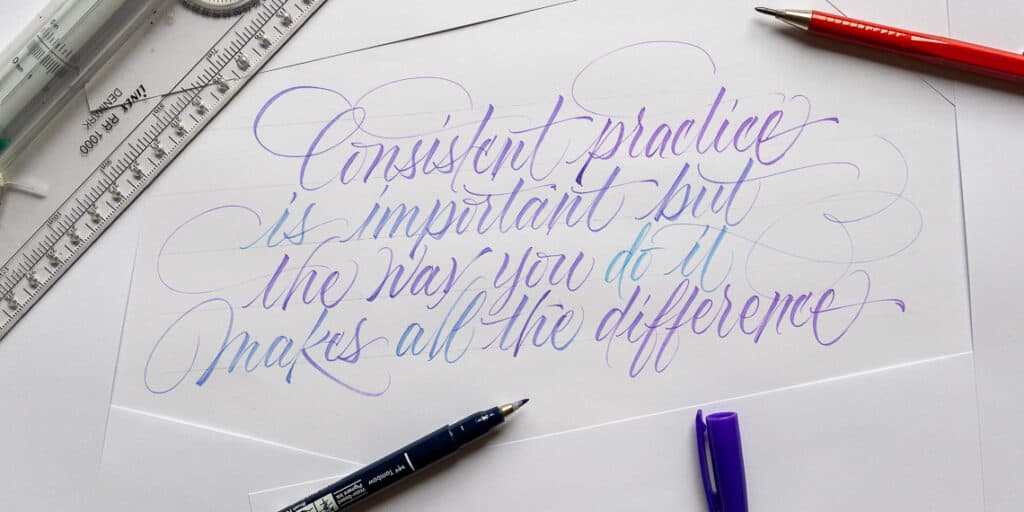 Consistent practice
is important but
the way you do it
makes all the difference
LINEX
DENMARK
RR 1000
Tombow